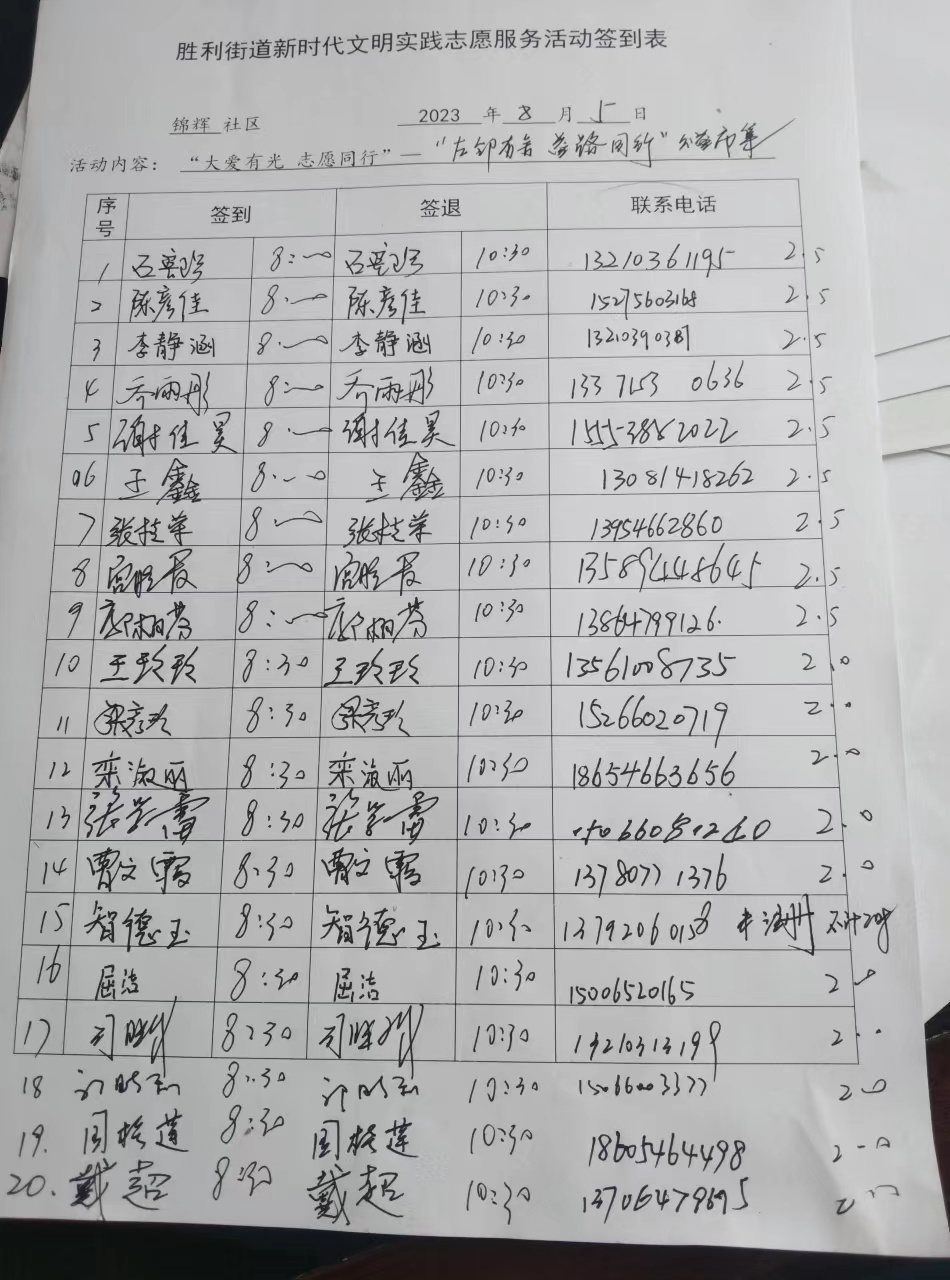 胜利街道新时代文明实践志愿服务活动签到表
锦辉 社区 2023 年 8 月 5 日
活动内容: “大爱有光 志愿同行”—“左邻右舍 益路同行”公益市集
序号 签到 签退 联系电话
1 8:00 10:30 13210361195 2.5
2 陈彦佳 8:00 陈彦佳 10:30 15275603168 2.5
3 李静涵 8:00 李静涵 10:30 2.5
4 乔雨彤 8:00 乔雨彤 10:30 1337153 0636 2.5
5 谢佳昊 8:00 谢佳昊 10:30 15553882022 2.5
06 王鑫 8:00 王鑫 10:30 13081418262 2.5
7 张桂荣 8:00 张桂荣 10:30 13954662860 2.5
8 8:00 10:30 2.5
9 8:00 10:30 13864799126. 2.5
10 王玲玲 8:30 王玲玲 10:30 13561008735 2.0
11 梁彦玲 8:30 梁彦玲 10:30 15266020719 2.0
12 栾淑丽 8:30 栾淑丽 10:30 18654663656 2.0
13 8:30 10:30 2.0
14 曹文霞 8:30 曹文霞 10:30 1378077 1376 2.0
15 智德玉 8:30 智德玉 10:30 13792060158 未注册 不计时
16 屈洁 8:30 屈洁 10:30 15006520165 2.0
17 8:30 10:30 13210313199 2.0
18 8:30 10:30 15066003377 2.0
19. 周桂莲 8:30 周桂莲 10:30 18605464498 2.0
20. 戴超 8:30 戴超 10:30 13706479695 2.0